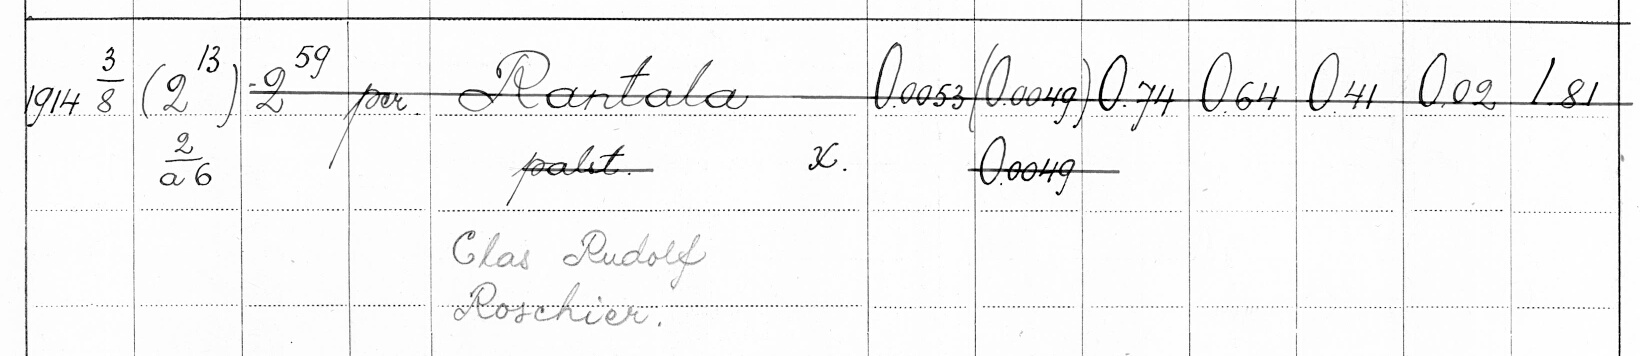 1914 3/8 (2 13) 2 59 per. Rantala 0.0053 (0.0049) 0.74 0.64 0.41 0.02 1.81
2/a6 palst. x. 0.0049
Clas Rudolf
Roschier.